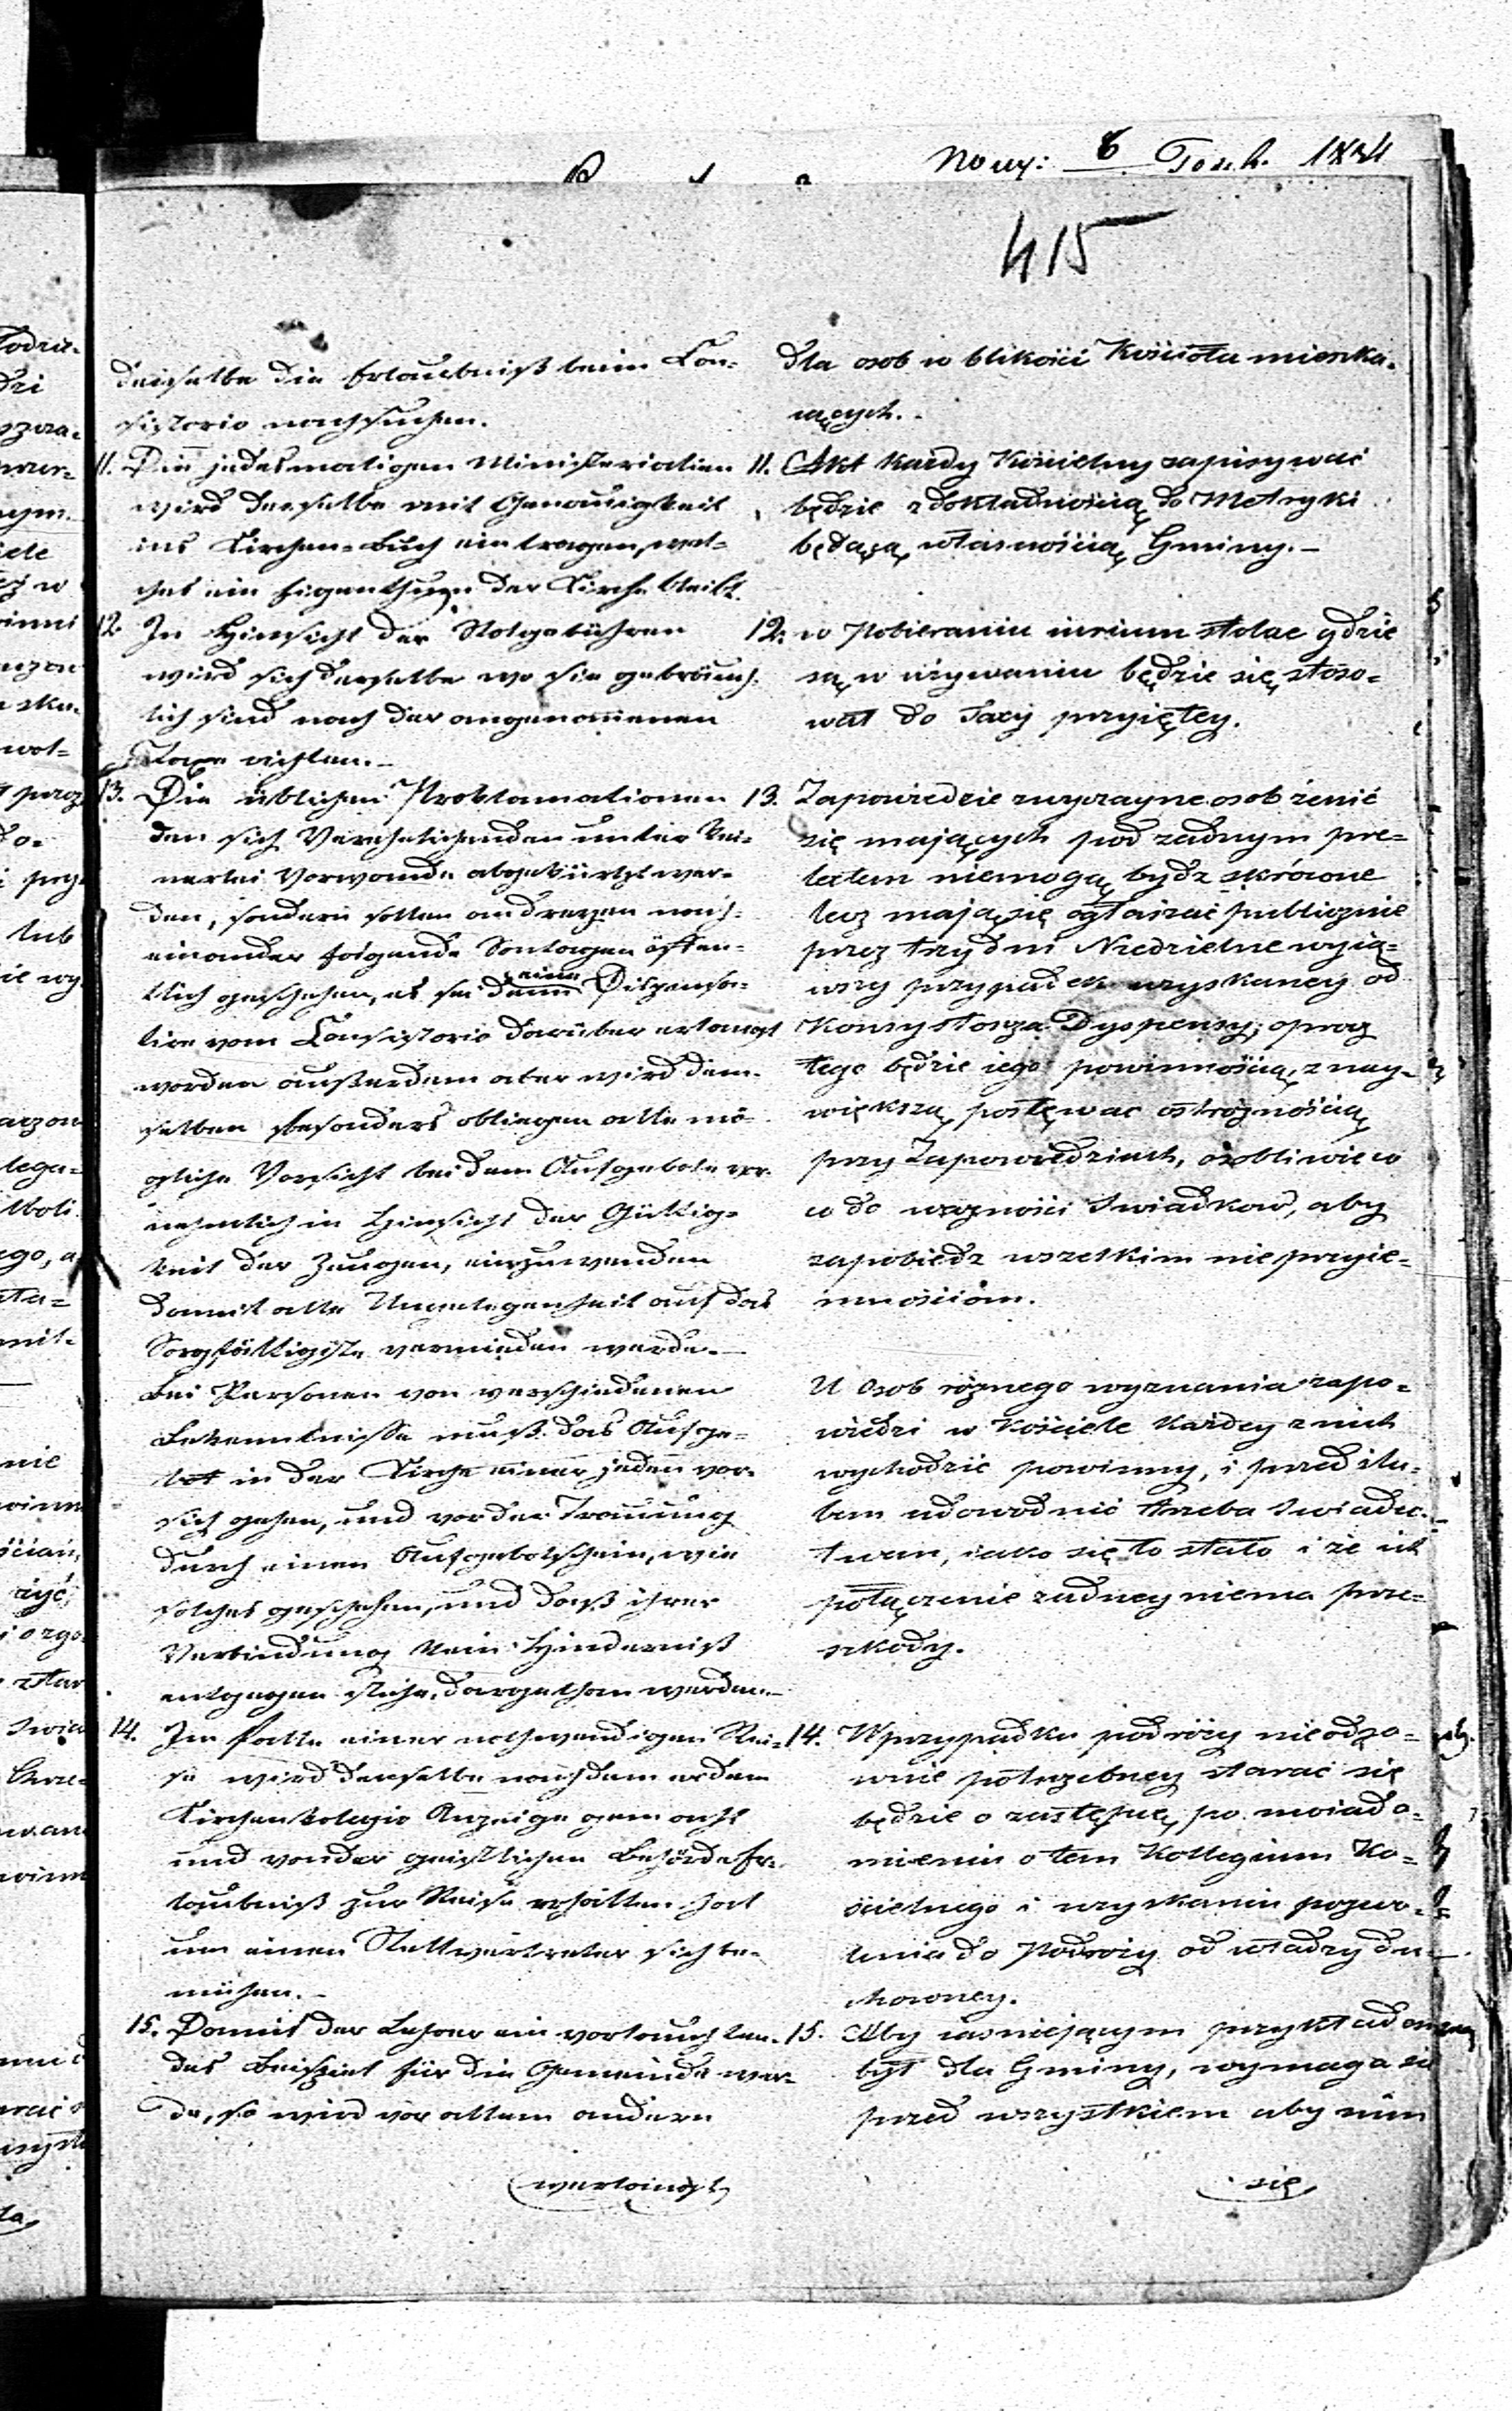 415
derselbe die Erlaubniß beim Con-
sistorio nachsuchen.
11. Die jedesmaligen Ministerialien
wird derselbe mit Genauigkeit
ins Kirchen-Buch eintragen, wel-
ches ein Eigenthum der Kirche bleibt.
12. In Hinsicht der Stolgebühren
wird sich derselbe wo sie gebräuch-
lich sind nach der angenommenen
Taxe richten.-
13. Die üblichen Proklamationen
den sich Verehelichenden unter kei-
nerlei Vorwande abgekürtzt wer-
den, sondern sollen an dreyen nach-
einander folgende Sontagen öffen-
tlich geschehen, es sei denn eine Dispensa-
tion vom Consistorio darüber erlangt
worden außerdem aber wird dem-
selben besonders obliegen alle mö-
gliche Vorsicht bei dem Aufgebote vor-
nehmlich in Hinsicht der Gültig-
keit der Zeugen, anzuwenden
damit alle Ungelegenheit auf das
Sorgfältigste vermieden werde.-
Bei Personen von verschiedenen
Bekenntnisse muß das Aufge-
bot in der Kirche einer jeden vor-
sich gehen, und vor der Trauung
durch einen Aufgebotschein, wie
solches geschehen, und daß ihrer
Verbindung kein Hinderniß
entgegen stehe, dargethan werden.-
14. Im Falle einer nothwendigen Rei-
se wird derselbe nachdem er dem
Kirchenkolegio Anzeige gemacht
und von der geistlichen Behörde Er-
laubniß zur Reise erhalten hat
um einen Stellvertreter sich be-
mühen.-
15. Damit der Lehrer ein vorleuchten-
des Beispiel für die Gemeinde wer-
de, so wird vor allem andern
verlangt
dla osob w blikości Kościoła mieszka-
iących.-
11. Akt każdy Kościelny zapisywać
będzie z dokładnością do Metryki
będącą własnością Gminy.-
12. w Pobieraniu iurium stolae gdzie
są w używaniu będzie się stoso-
wał do Taxy przyiętey.
13. Zapowiedzie zwyczayne osob żenić
się mających pod żadnym pre-
textem niemogą bydz skrócone
lecz mają się ogłaszać publicznie
przez trzy dni Niedzielne wyią-
wszy przypadek uzyskaney od
Konsystorza Dyspensy; oprocz
tego będzie iego powinnością, z nay-
większą postępować ostrożnością
przy Zapowiedziach, osobliwie w
co do ważności Swiadkow, aby
zapobiedz wszelkim nieprzyie-
mnościom.
U Osob różnego wyznania zapo-
wiedzi w Kościele każdey z nich
wychodzić powinny, i przed ślu-
bem udowodnić trzeba Swiadec-
twem, iako się to stało i że ich
połączenie żadney niema prze-
szkody.
14. W przypadku podróży nieodzo-
wnie potrzebney starać się
będzie o zastępcę, po uwiado-
mieniu o tem Kollegium Ko-
ścielnego i uzyskaniu pozwo-
lenia do Podróży od władzy du-
chowney.
15. Aby iasniejącym przykładem
był dla Gminy, wymaga się
przed wszystkiem aby nim
się